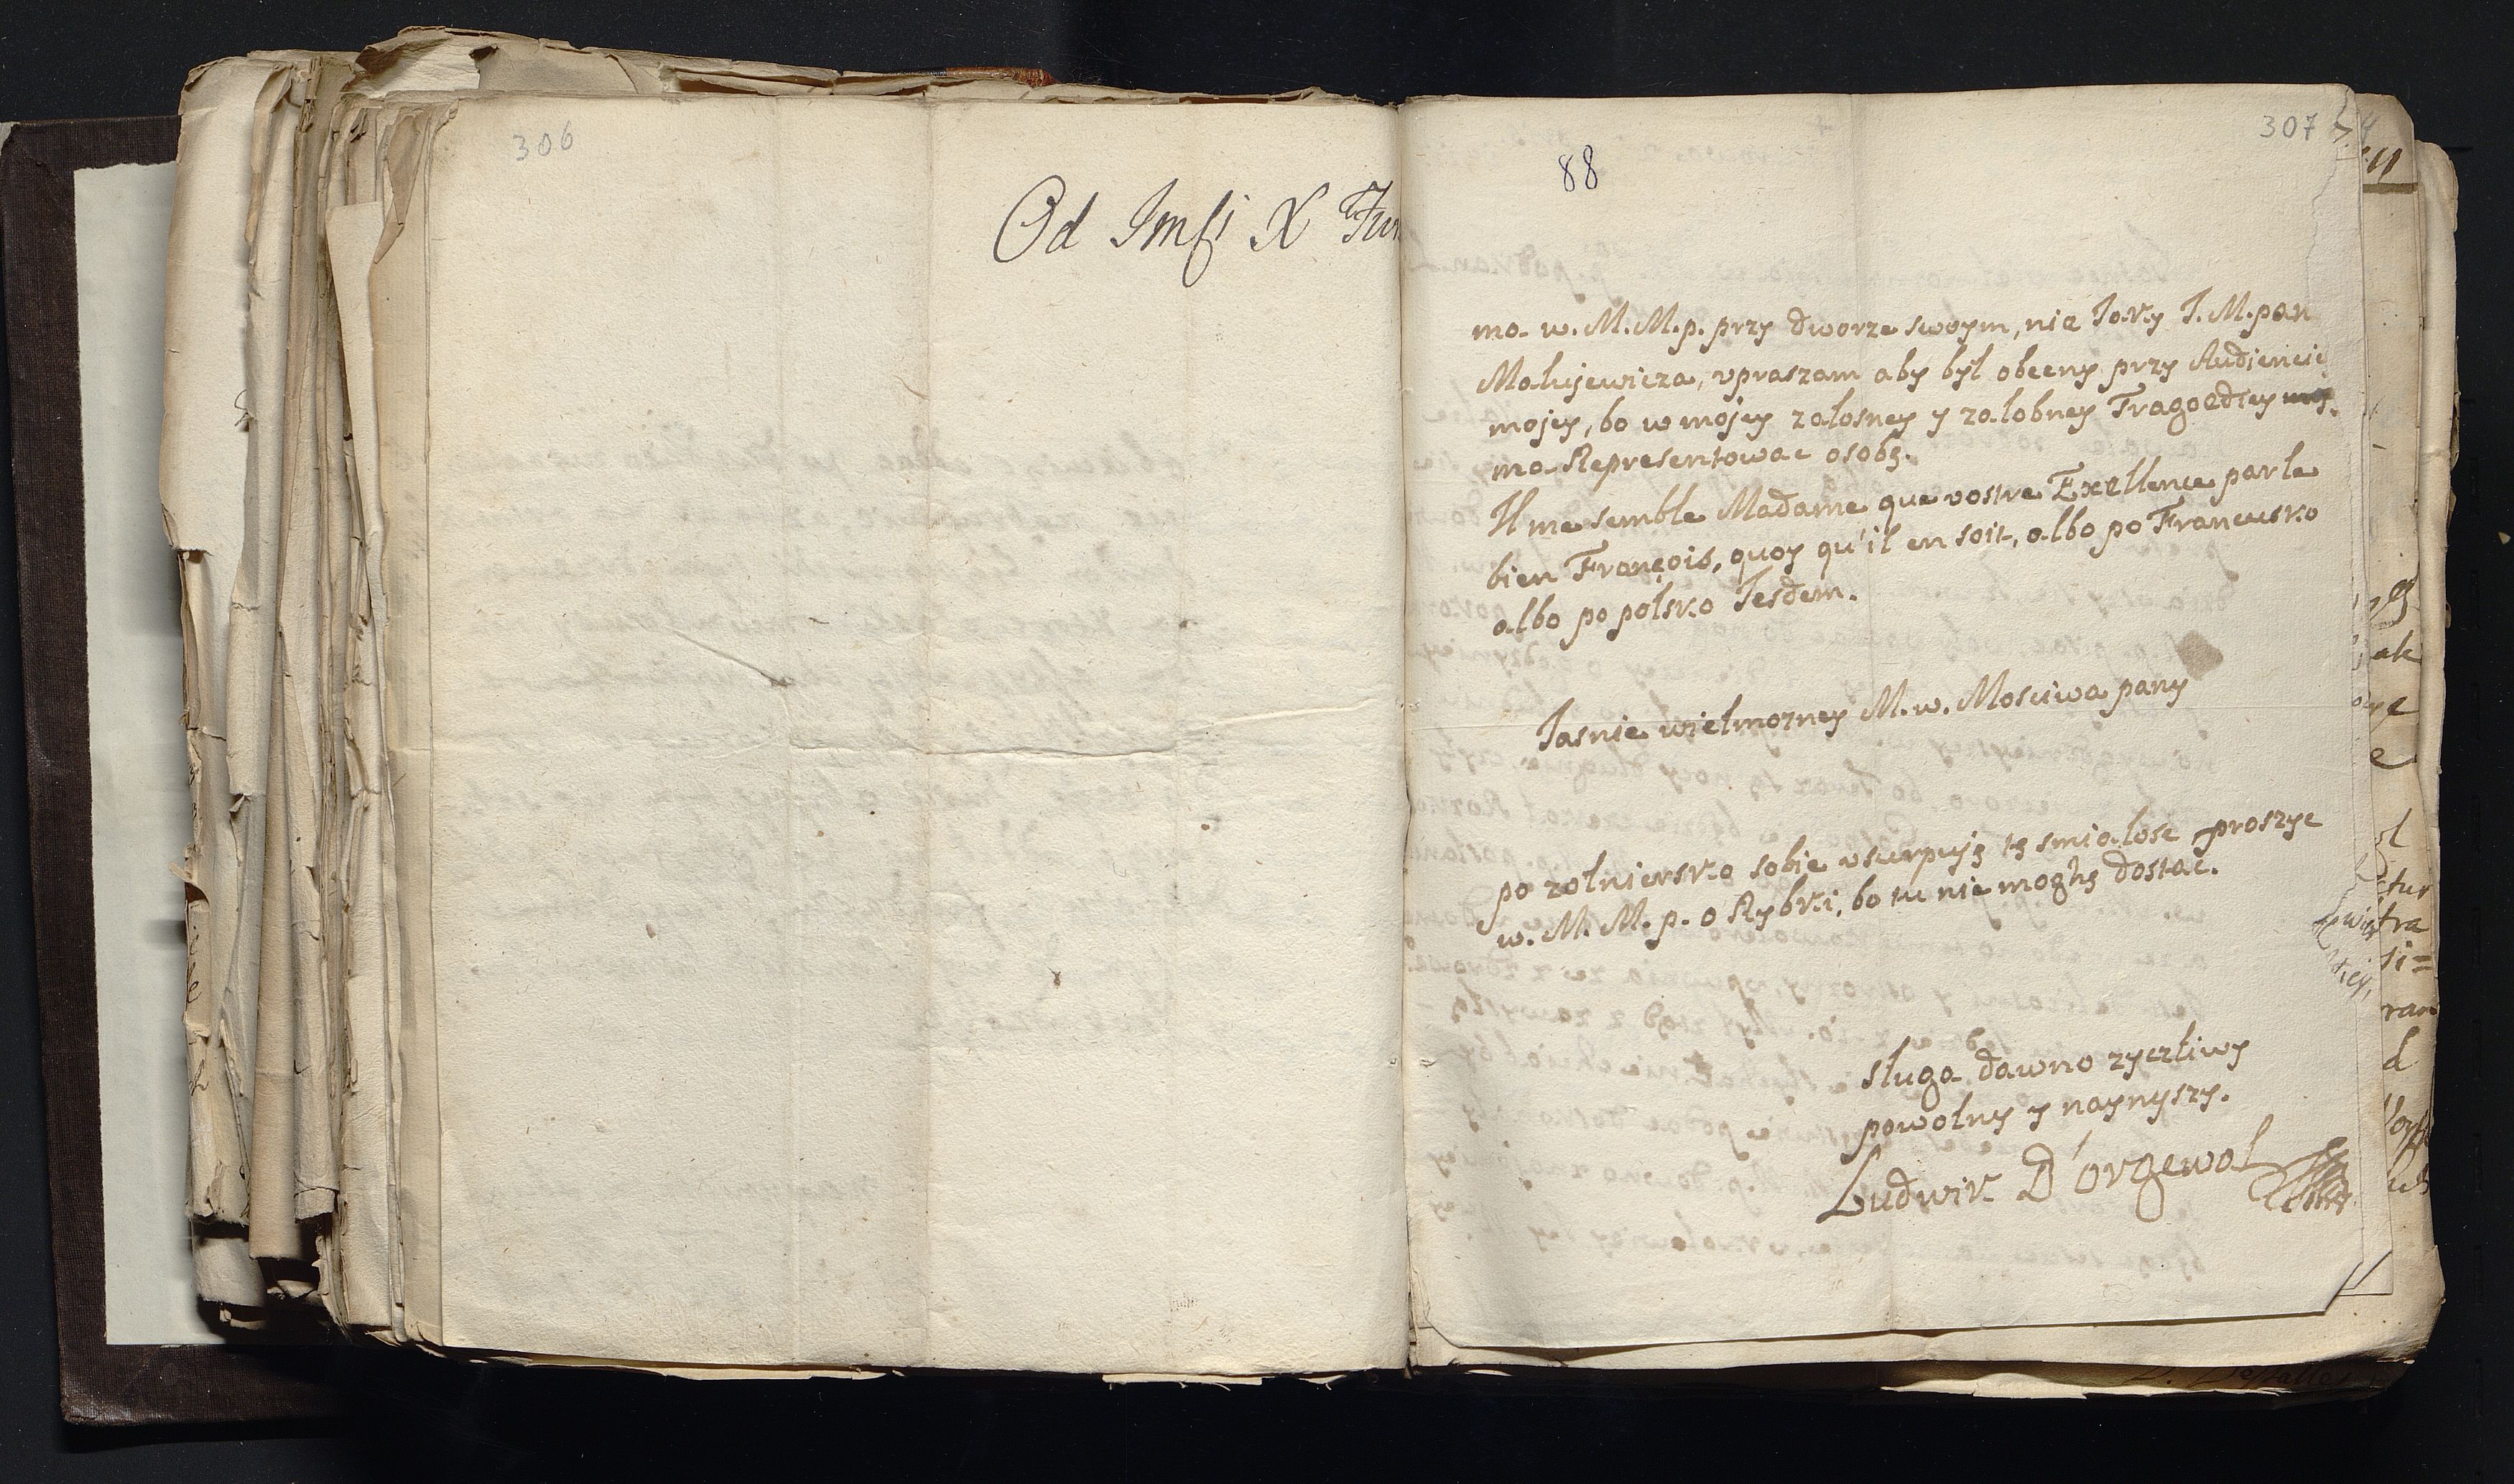 306
Od Jmsci X
88
307
ma w. M. M. p. przy dworze swoym, nie Jaky J. M. pan
Malujewicza, upraszam aby był obecny przy Audiencię
mojey, bo w mojey załosney y załobney Tragoediey
ma Representowac osobę.
Il me semble Madame que vostre Exellence parle
bien François, quoy qu'il en soit, albo po Francusko
albo po polsko Jesdem.
Jasnie wielmozney M. w. Mosciwa pany
po zolniersko sobie usurpuję tę smialosc proszyc
w. M. M. p. o Rybki, bo tu nie moghę dostac.
sługa dawno zyczliwy
powolny y naynyszy.
Ludwik D'orgewal